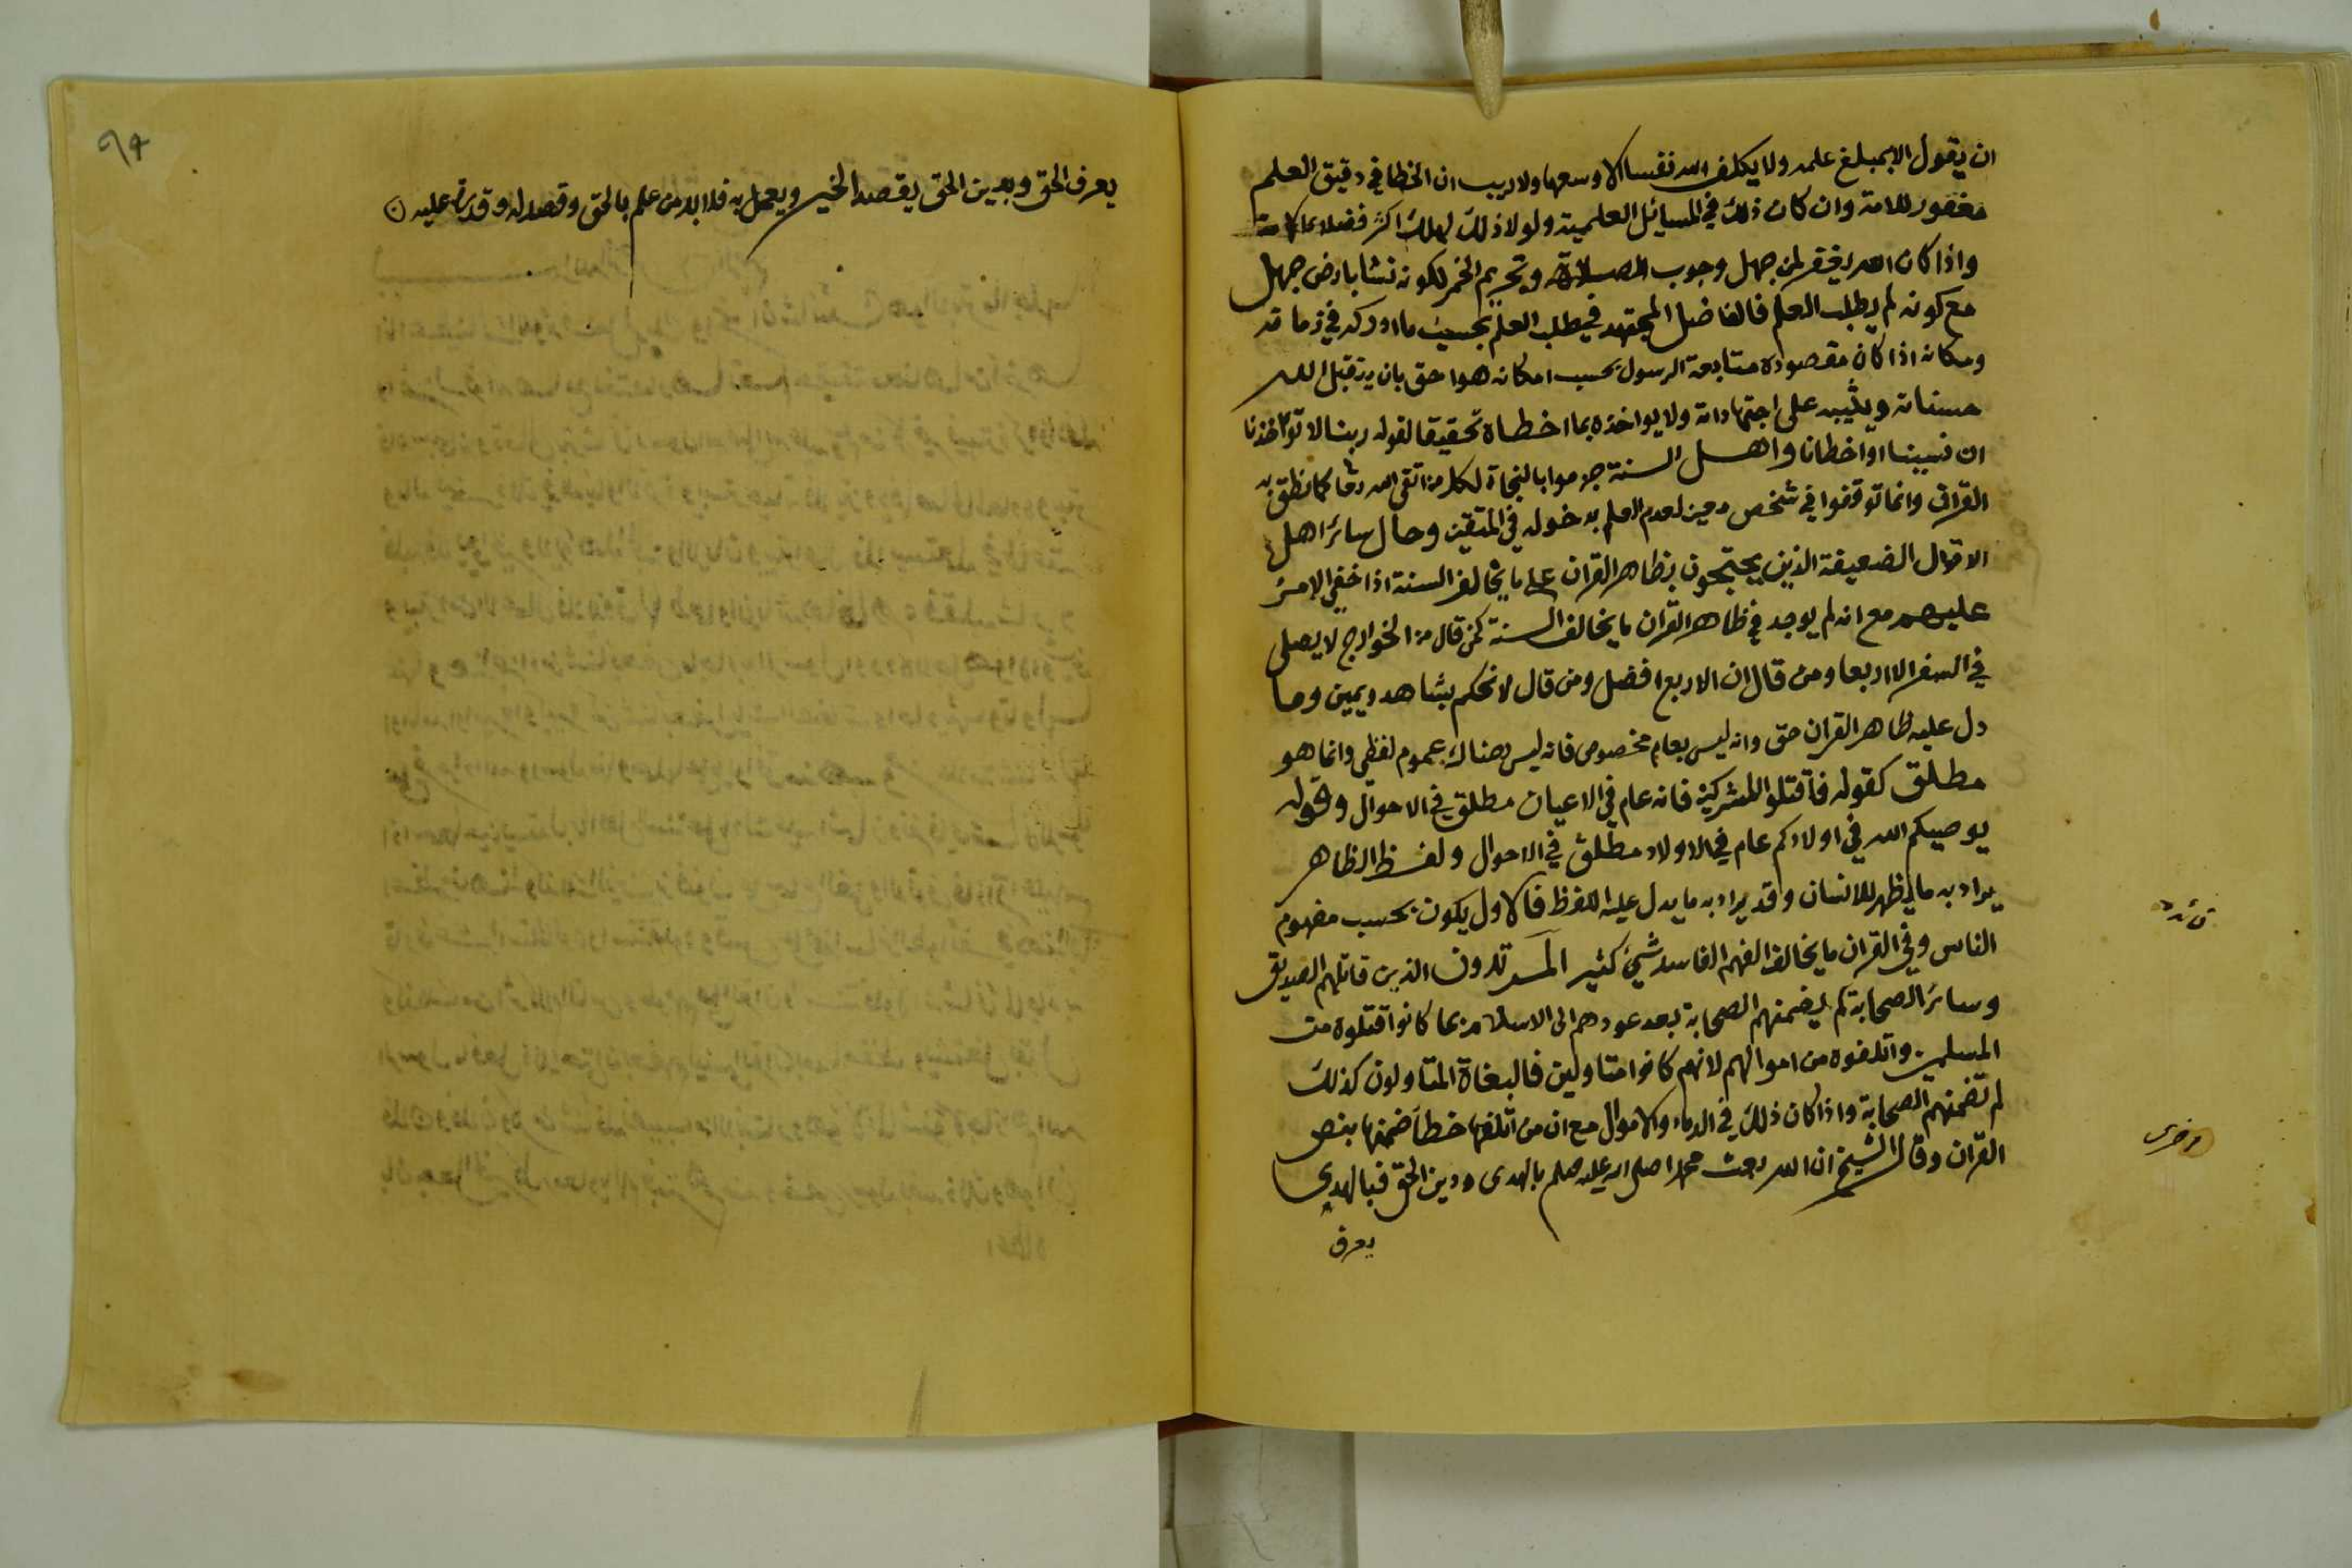 ان يقول الا بمبلغ علمه ولا يكلف الله نفسا الا وسعها ولا ريب ان الخطا في دقيق العلم
مغفور للامة وان كان ذلك في المسائل العلمية ولولا ذلك لهلك اكثر فضلاء الامة
واذا كان الله يغفر لمن جهل وجوب الصلاة وتحريم الخمر لكونه نشا بارض جهل
مع كونه لم يطلب العلم فالفاضل المجتهد في طلب العلم بحسب ما ادركه في زمانه
ومكانه اذا كان مقصوده متابعة الرسول بحسب امكانه هو احق بان يتقبل الله
حسناته ويثيبه على اجتهاداته ولا يواخذه بما اخطاه تحقيقا لقوله ربنا لا تؤاخذنا
ان نسينا او اخطانا واهل السنة جزموا بالنجاة لكل من اتقى الله كما نطق به
القران وانما توقفوا في شخص معين لعدم العلم بدخوله في المتقين وحال سائر اهل
الاقوال الضعيفة الذين يحتجون بظاهر القران على ما يخالف السنة اذا خفي الامر
عليهم مع انه لم يوجد في ظاهر القران ما يخالف السنة كمن قال من الخوارج لا يصلى
في السفر الا اربعا ومن قال ان الاربع افضل ومن قال لا نحكم بشاهد ويمين وما
دل عليه ظاهر القران حق وانه ليس بعام مخصوص فانه ليس هناك عموم لفظي وانما هو
مطلق كقوله فاقتلوا المشركين فانه عام في الاعيان مطلق في الاحوال وقوله
يوصيكم الله في اولادكم عام في الاولاد مطلق في الاحوال ولفظ الظاهر
يراد به ما يظهر للانسان وقد يراد به ما يدل عليه اللفظ فالاول يكون بحسب مفهوم
الناس وفي القران ما يخالف الفهم الفاسد شيء كثير المرتدون الذين قاتلهم الصديق
وسائر الصحابة لم يضمنهم الصحابة بعد عودهم الى الاسلام بما كانوا قتلوه من
المسلمين واتلفوه من اموالهم لانهم كانوا متاولين فالبغاة المتاولون كذلك
لم تضمنهم الصحابة واذا كان ذلك في الدماء والاموال مع ان من اتلفها خطأ ضمنها بنص
القران وقال الشيخ ان الله بعث محمدا صلى الله عليه وسلم بالهدى ودين الحق فبالهدى
يعرف
فائدة
اخرى
يعرف الحق وبدين الحق يقصد الخير ويعمل به فلا بد من علم بالحق وقصد له وقدرة عليه